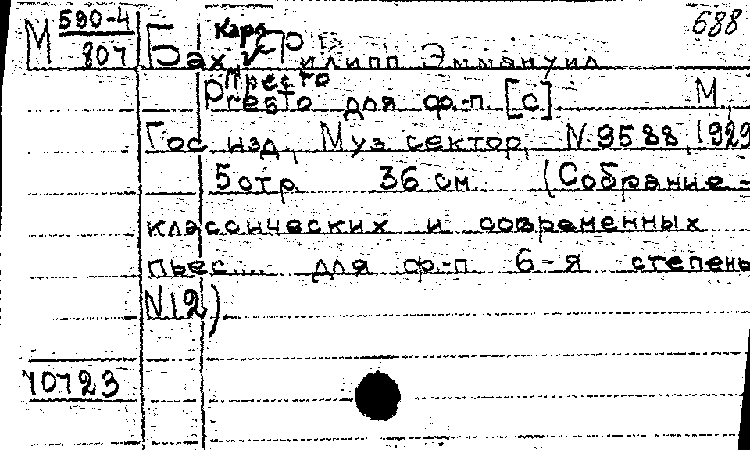 688
М 590-4
807
Карл
Бах Филипп Эммануил
Престо
Presto для ф.-п. [c]. М.,
Гос. изд. Муз. сектор, N 9588, 1929
5 стр. 36 см. (Собрание
классических и современных
пьес.... для ф.-п. 6-я степень
N 12)
10123